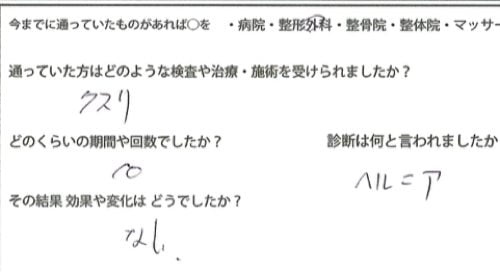 今までに通っていたものがあれば○を ・病院・整形外科・整骨院・整体院・マッサー
通っていた方はどのような検査や治療・施術を受けられましたか？
クスリ
どのくらいの期間や回数でしたか？ 診断は何と言われましたか
ヘルニア
その結果 効果や変化は どうでしたか？
なし.